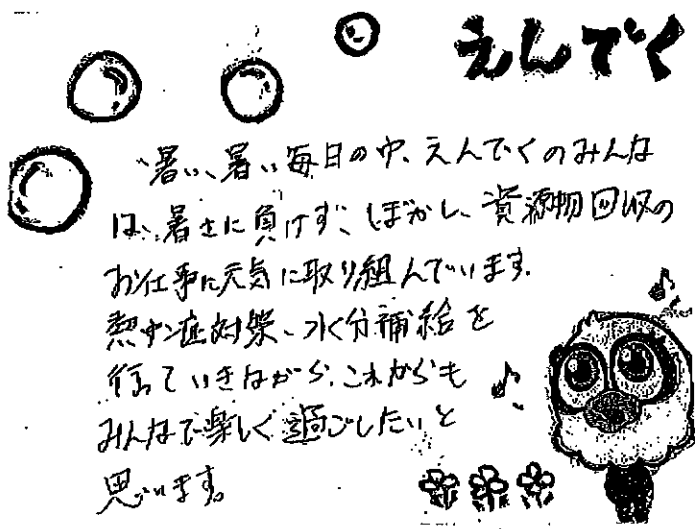 えんでく
暑い、暑い毎日の中、えんでくのみんな
は、暑さに負けず、ぼかし、資源物回収の
お仕事に元気に取り組んでいます。
熱中症対策、水分補給を
行っていきながら、これからも
みんなで楽しく過ごしたいと
思います。